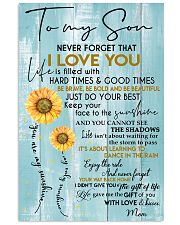 To my Son
NEVER FORGET THAT
I LOVE YOU
Life is filled with
HARD TIMES & GOOD TIMES
BE BRAVE, BE BOLD AND BE BEAUTIFUL
JUST DO YOUR BEST
Keep your
face to the sunshine
AND YOU CANNOT SEE
THE SHADOWS
Life isn't about waiting for
the storm to pass
IT'S ABOUT LEARNING TO
DANCE IN THE RAIN
Enjoy the ride
And never forget
YOUR WAY BACK HOME
I DIDN'T GIVE YOU The gift of life
Life gave me the GIFT of you
WITH LOVE & kisses
Mom
You are my sunshine